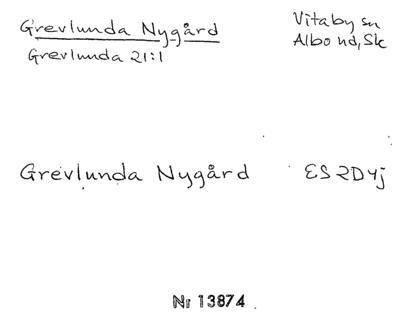 Grevlunda Nygård
Vitaby sn
Grevlunda 21:1
Albo hd, Sk
Grevlunda Nygård ES 2D4j
Nr 13874